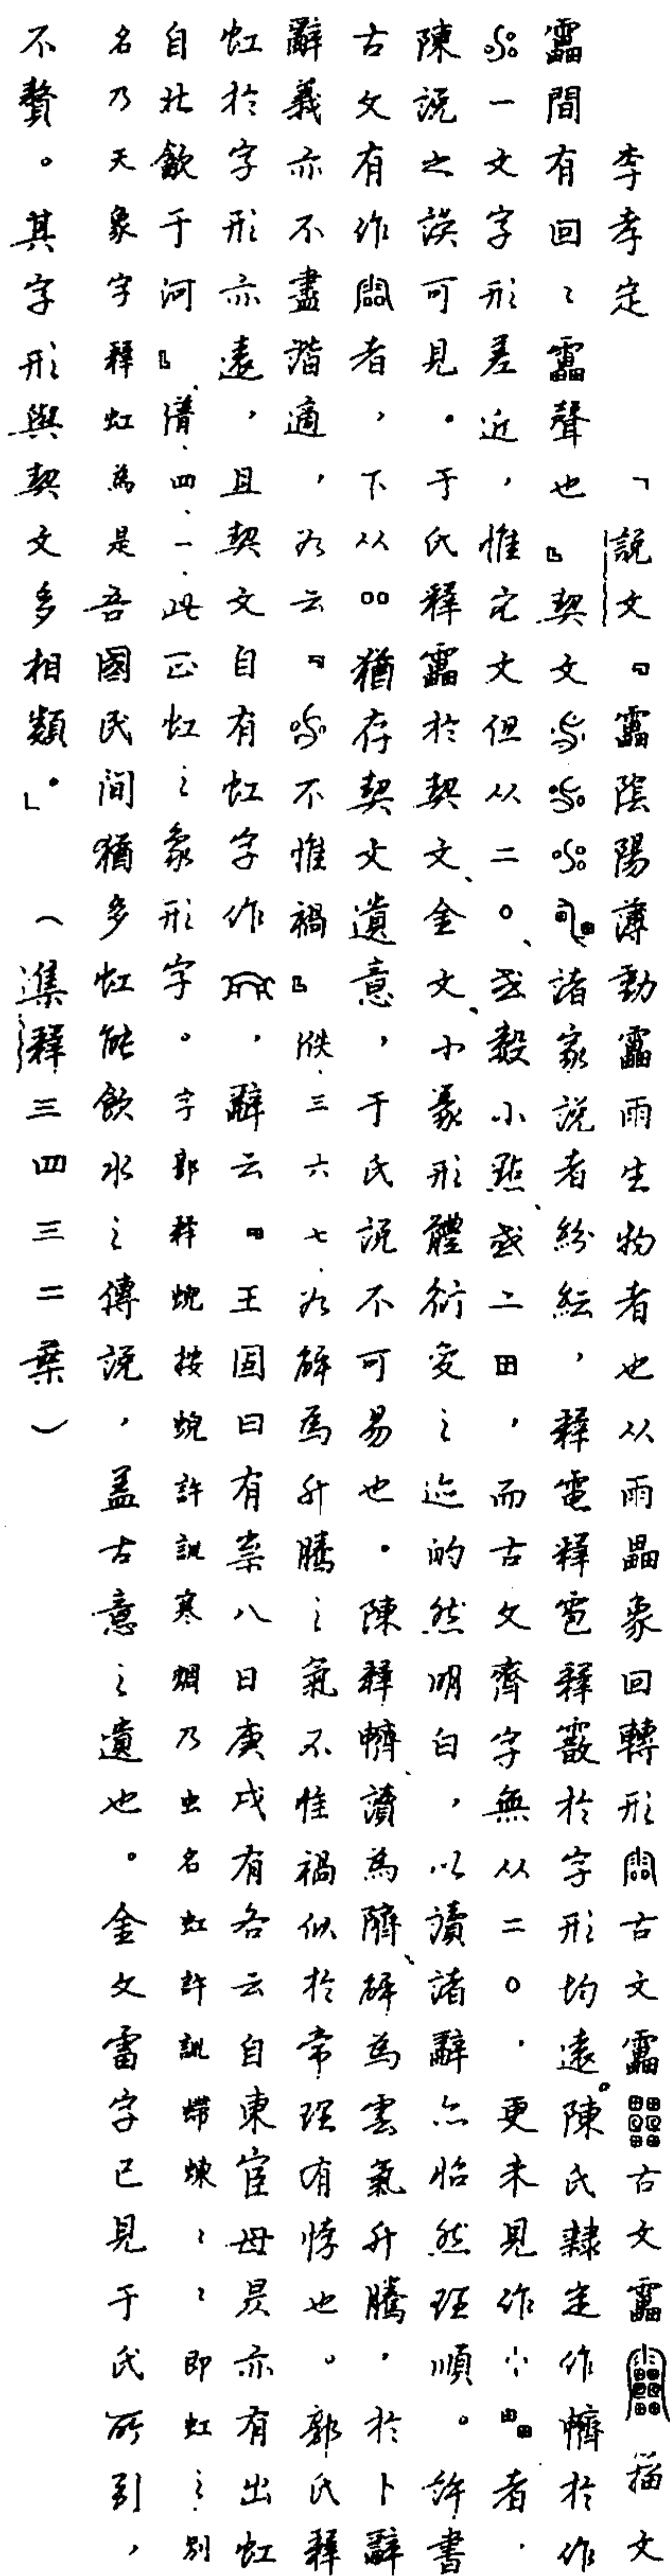 李孝定　「說文『靁陰陽薄動靁雨生物者也从雨畾象回轉形古文靁古文靁籀文
靁間有回〻靁聲也』契文諸家說者紛紜，釋電釋雹釋霰於字形均遠。陳氏隸定作㠿於作
一文字形差近，惟它文但从二○、或數小點、或二田，而古文齊字無从二○，更未見作者，
陳說之誤可見。于氏釋靁於契文、金文、小篆形體衍變之迹的然明白，以讀諸辭亦怡然理順。許書
古文有作者，下从○○猶存契文遺意，于氏說不可易也。陳釋㠿、讀為隮、解為雲氣升騰，於卜辭
辭義亦不盡諧適，如云『不惟禍』佚．三六七．如解為升騰之氣不惟禍似於常理有悖也。郭氏釋
虹於字形亦遠，且契文自有虹字作，辭云『王固曰有祟八日庚戌有各云自東宦母昃亦有出虹
自北飲于河』、菁．四．一．此正虹之象形字。字郭釋蜺按蜺許訓寒蜩乃虫名虹許訓螮蝀〻〻即虹之別
名乃天象字釋虹為是吾國民間猶多虹能飲水之傳說，蓋古意之遺也。金文雷字已見于氏所引，
不贅。其字形與契文多相類。」（集釋三四三二葉）